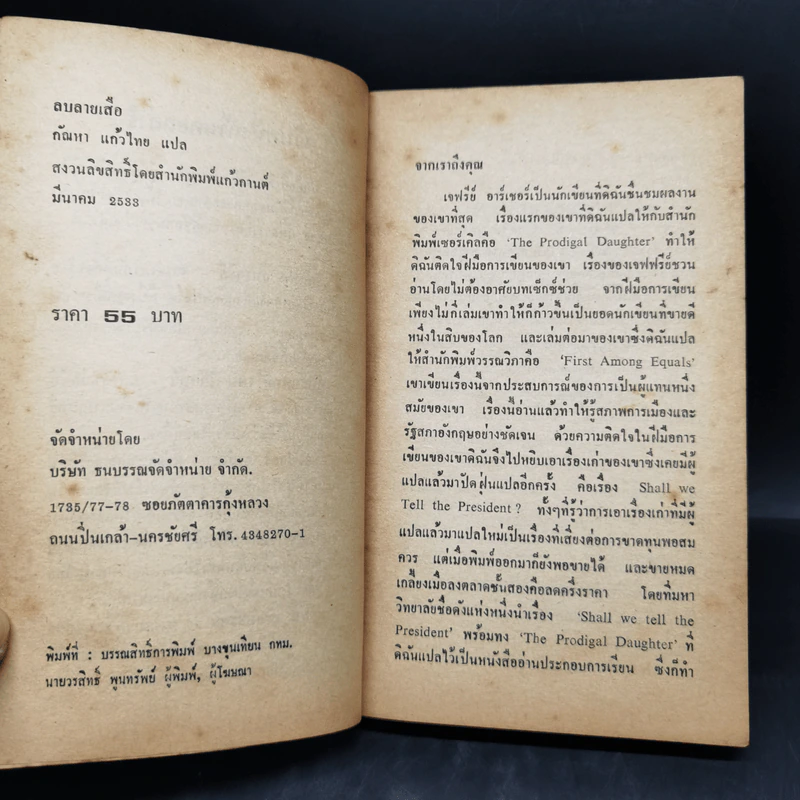 ลบลายเสือ
กัณหา แก้วไทย แปล
สงวนลิขสิทธิ์โดยสำนักพิมพ์แก้วกานต์
มีนาคม 2533
ราคา 55 บาท
จัดจำหน่ายโดย
บริษัท ธนบรรณจัดจำหน่าย จำกัด.
1735/77-78 ซอยภัตตาคารกุ้งหลวง
ถนนปิ่นเกล้า-นครชัยศรี โทร. 4348270-1
พิมพ์ที่ : บรรณสิทธิ์การพิมพ์ บางขุนเทียน กทม.
นายวรสิทธิ์ พูนทรัพย์ ผู้พิมพ์, ผู้โฆษณา
จากเราถึงคุณ
เจฟรีย์ อาร์เชอร์เป็นนักเขียนที่ดิฉันชื่นชมผลงาน
ของเขาที่สุด เรื่องแรกของเขาที่ดิฉันแปลให้กับสำนัก
พิมพ์เซอร์เคิลคือ 'The Prodigal Daughter' ทำให้
ดิฉันติดใจฝีมือการเขียนของเขา เรื่องของเจฟฟรีย์ชวน
อ่านโดยไม่ต้องอาศัยบทเซ็กซ์ช่วย จากฝีมือการเขียน
เพียงไม่กี่เล่มเขาทำให้ก็ก้าวขึ้นเป็นยอดนักเขียนที่ขายดี
หนึ่งในสิบของโลก และเล่มต่อมาของเขาซึ่งดิฉันแปล
ให้สำนักพิมพ์วรรณวิภาคือ 'First Among Equals'
เขาเขียนเรื่องนี้จากประสบการณ์ของการเป็นผู้แทนหนึ่ง
สมัยของเขา เรื่องนี้อ่านแล้วทำให้รู้สภาพการเมืองและ
รัฐสภาอังกฤษอย่างชัดเจน ด้วยความติดใจในฝีมือการ
เขียนของเขาดิฉันจึงไปหยิบเอาเรื่องเก่าของเขาซึ่งเคยมีผู้
แปลแล้วมาปัดฝุ่นแปลอีกครั้ง คือเรื่อง Shall we
Tell the President? ทั้งๆที่รู้ว่าการเอาเรื่องเก่าที่มีผู้
แปลแล้วมาแปลใหม่เป็นเรื่องที่เสี่ยงต่อการขาดทุนพอสม
ควร แต่เมื่อพิมพ์ออกมาก็ยังพอขายได้ และขายหมด
เกลี้ยงเมื่อลงตลาดชั้นสองคือลดครึ่งราคา โดยที่มหา
วิทยาลัยชื่อดังแห่งหนึ่งนำเรื่อง 'Shall we tell the
President' พร้อมทง 'The Prodigal Daughter' ที่
ดิฉันแปลไว้เป็นหนังสืออ่านประกอบการเรียน ซึ่งก็ทำ